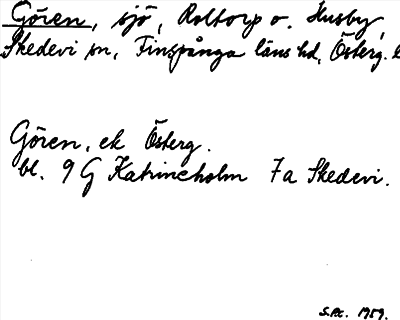 Gören, sjö, Roltorp o. Husby,
Skedevi sn, Finspånga läns hd, Österg.
Gören, ek Österg.
bl. 9 G Katrineholm 7a Skedevi.
1959.